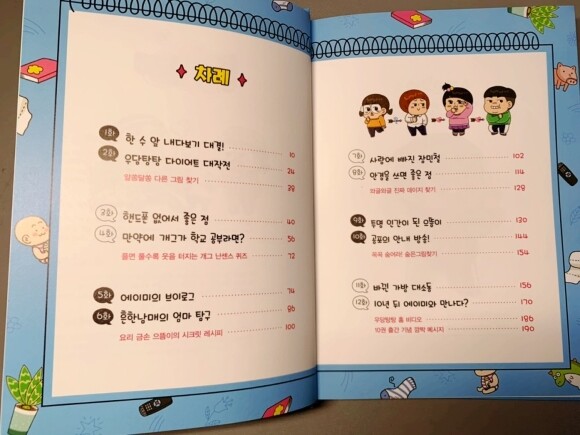 차례
1화 한 수 앞 내다보기 대결! 10
2화 우당탕탕 다이어트 대작전 24
알쏭달쏭 다른 그림 찾기 38
3화 핸드폰 없어서 좋은 점 40
4화 만약에 개그가 학교 공부라면? 56
풀면 풀수록 웃음 터지는 개그 난센스 퀴즈 72
5화 에이미의 브이로그 74
6화 흔한남매의 엄마 탐구 86
요리 금손 으뜸이의 시크릿 레시피 100
7화 사랑에 빠진 장민철 102
8화 안경을 쓰면 좋은 점 114
와글와글 진짜 데이지 찾기 128
9화 투명 인간이 된 으뜸이 130
10화 공포의 안내 방송! 144
꼭꼭 숨어라! 숨은그림찾기 154
11화 바뀐 가방 대소동 156
12화 10년 뒤 에이미와 만나다? 170
우당탕탕 홈 비디오 186
10권 출간 기념 깜짝 메시지 190